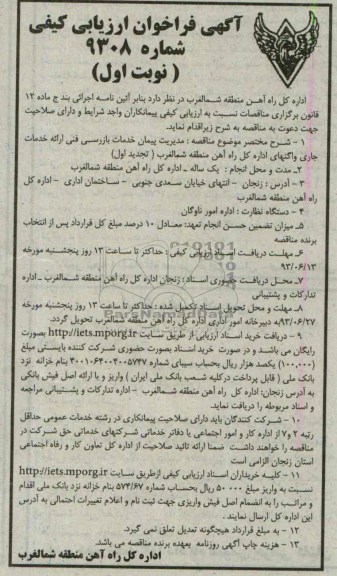 آگهی فراخوان ارزیابی کیفی
شماره ۹۳۰۸
( نوبت اول)
اداره کل راه آهن منطقه شمالغرب در نظر دارد بنابر آئین نامه اجرائی بند ج ماده ۱۲
قانون برگزاری مناقصات نسبت به ارزیابی کیفی پیمانکاران واجد شرایط و دارای صلاحیت
جهت دعوت به مناقصه به شرح زیراقدام نماید.
۱ - شرح مختصر موضوع مناقصه : مدیریت پیمان خدمات بازرسی فنی ارائه خدمات
جاری واگنهای اداره کل راه آهن منطقه شمالغرب ( تجدید اول)
۲- مدت و محل انجام : یک ساله - اداره کل راه آهن منطقه شمالغرب
۳ - آدرس : زنجان - انتهای خیابان سعدی جنوبی - ساختمان اداری - اداره کل
راه آهن منطقه شمالغرب
۴ - دستگاه نظارت : اداره امور ناوگان
۵- میزان تضمین حسن انجام تعهد: معادل ۱۰ درصد مبلغ کل قرارداد پس از انتخاب
برنده مناقصه
۶- مهلت دریافت اسناد ارزیابی کیفی : حداکثر تا ساعت ۱۳ روز پنجشنبه مورخه
۹۳/۰۶/۱۳
۷- محل دریافت حضوری اسناد : زنجان اداره کل راه آهن منطقه شمالغرب - اداره
تدارکات و پشتیبانی
۸- مهلت و محل تحویل اسناد تکمیل شده : حداکثر تا ساعت ۱۳ روز پنجشنبه مورخه
۹۳/۰۶/۲۷به دبیرخانه امور اداری اداره کل راه آهن منطقه شمالغرب تحویل گردد.
۹ - دریافت خرید اسناد ارزیابی از طریق سایت http://iets.mporg.ir بصورت
رایگان می باشد و در صورت خرید اسناد بصورت حضوری شرکت کننده بایستی مبلغ
(۱۰۰,۰۰۰) یکصد هزار ریال بحساب سیبای شماره ۳۰۰۱۰۶۴۰۰۳۰۰۵۷۴۷ بنام خزانه نزد
بانک ملی ( قابل پرداخت درکلیه شعب بانک ملی ایران ) واریز و با ارائه اصل فیش بانکی
به آدرس زنجان: اداره کل راه آهن منطقه شمالغرب - اداره تدارکات و پشتیبانی مراجعه
و اسناد مربوطه را دریافت نماید.
۱۰ - شرکت کنندگان باید دارای صلاحیت پیمانکاری در رشته خدمات عمومی حداقل
رتبه ۲ و۷ از اداره کار و امور اجتماعی یا دفاتر خدماتی شرکتهای خدماتی حق شرکت در
مناقصه را خواهند داشت ضمنا ارائه تائید صلاحیت از اداره کل تعاون کار و رفاه اجتماعی
استان زنجان الزامی است
۱۱ - کلیه خریداران اسناد ارزیابی کیفی ازطریق سایت http://iets.mporg.ir
نسبت به واریز مبلغ ۵۰۰۰۰ ریال بحساب شماره ۵۷۴/۶۷ بنام خزانه نزد بانک ملی اقدام
و مراتب را به انضمام اصل فیش واریزی جهت ثبت نام و اعلام تغییرات احتمالی به آدرس
این اداره کل ارسال نمایند .
۱۲ - به مبلغ قرارداد هیچگونه تعدیل تعلق نمی گیرد.
۱۳ - هزینه چاپ آگهی روزنامه بعهده برنده مناقصه می باشد.
اداره کل راه آهن منطقه شمالغرب